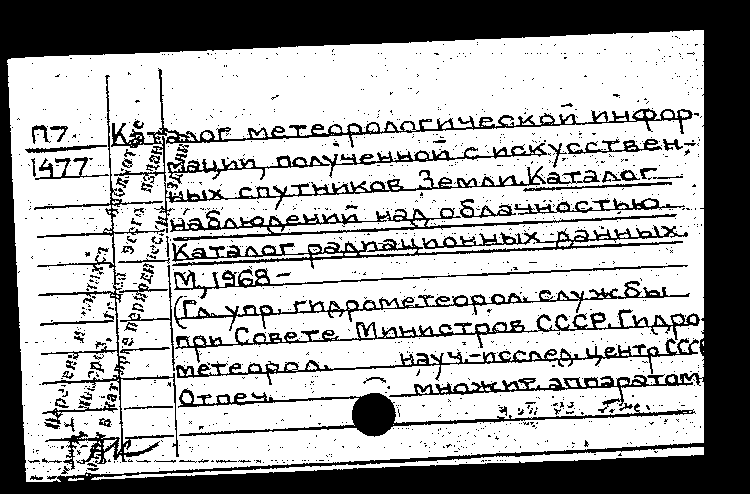 П7. Каталог метеорологической инфор-
1477 мации, полученной с искусствен-
ных спутников Земли. Каталог
наблюдений над облачностью.
Каталог радиационных данных.
М., 1968 -
(Гл. упр. гидрометеорол. службы
при Совете Министров СССР. Гидро-
метеорол. науч.-исслед. центр СССР
Отпеч. множит. аппаратом